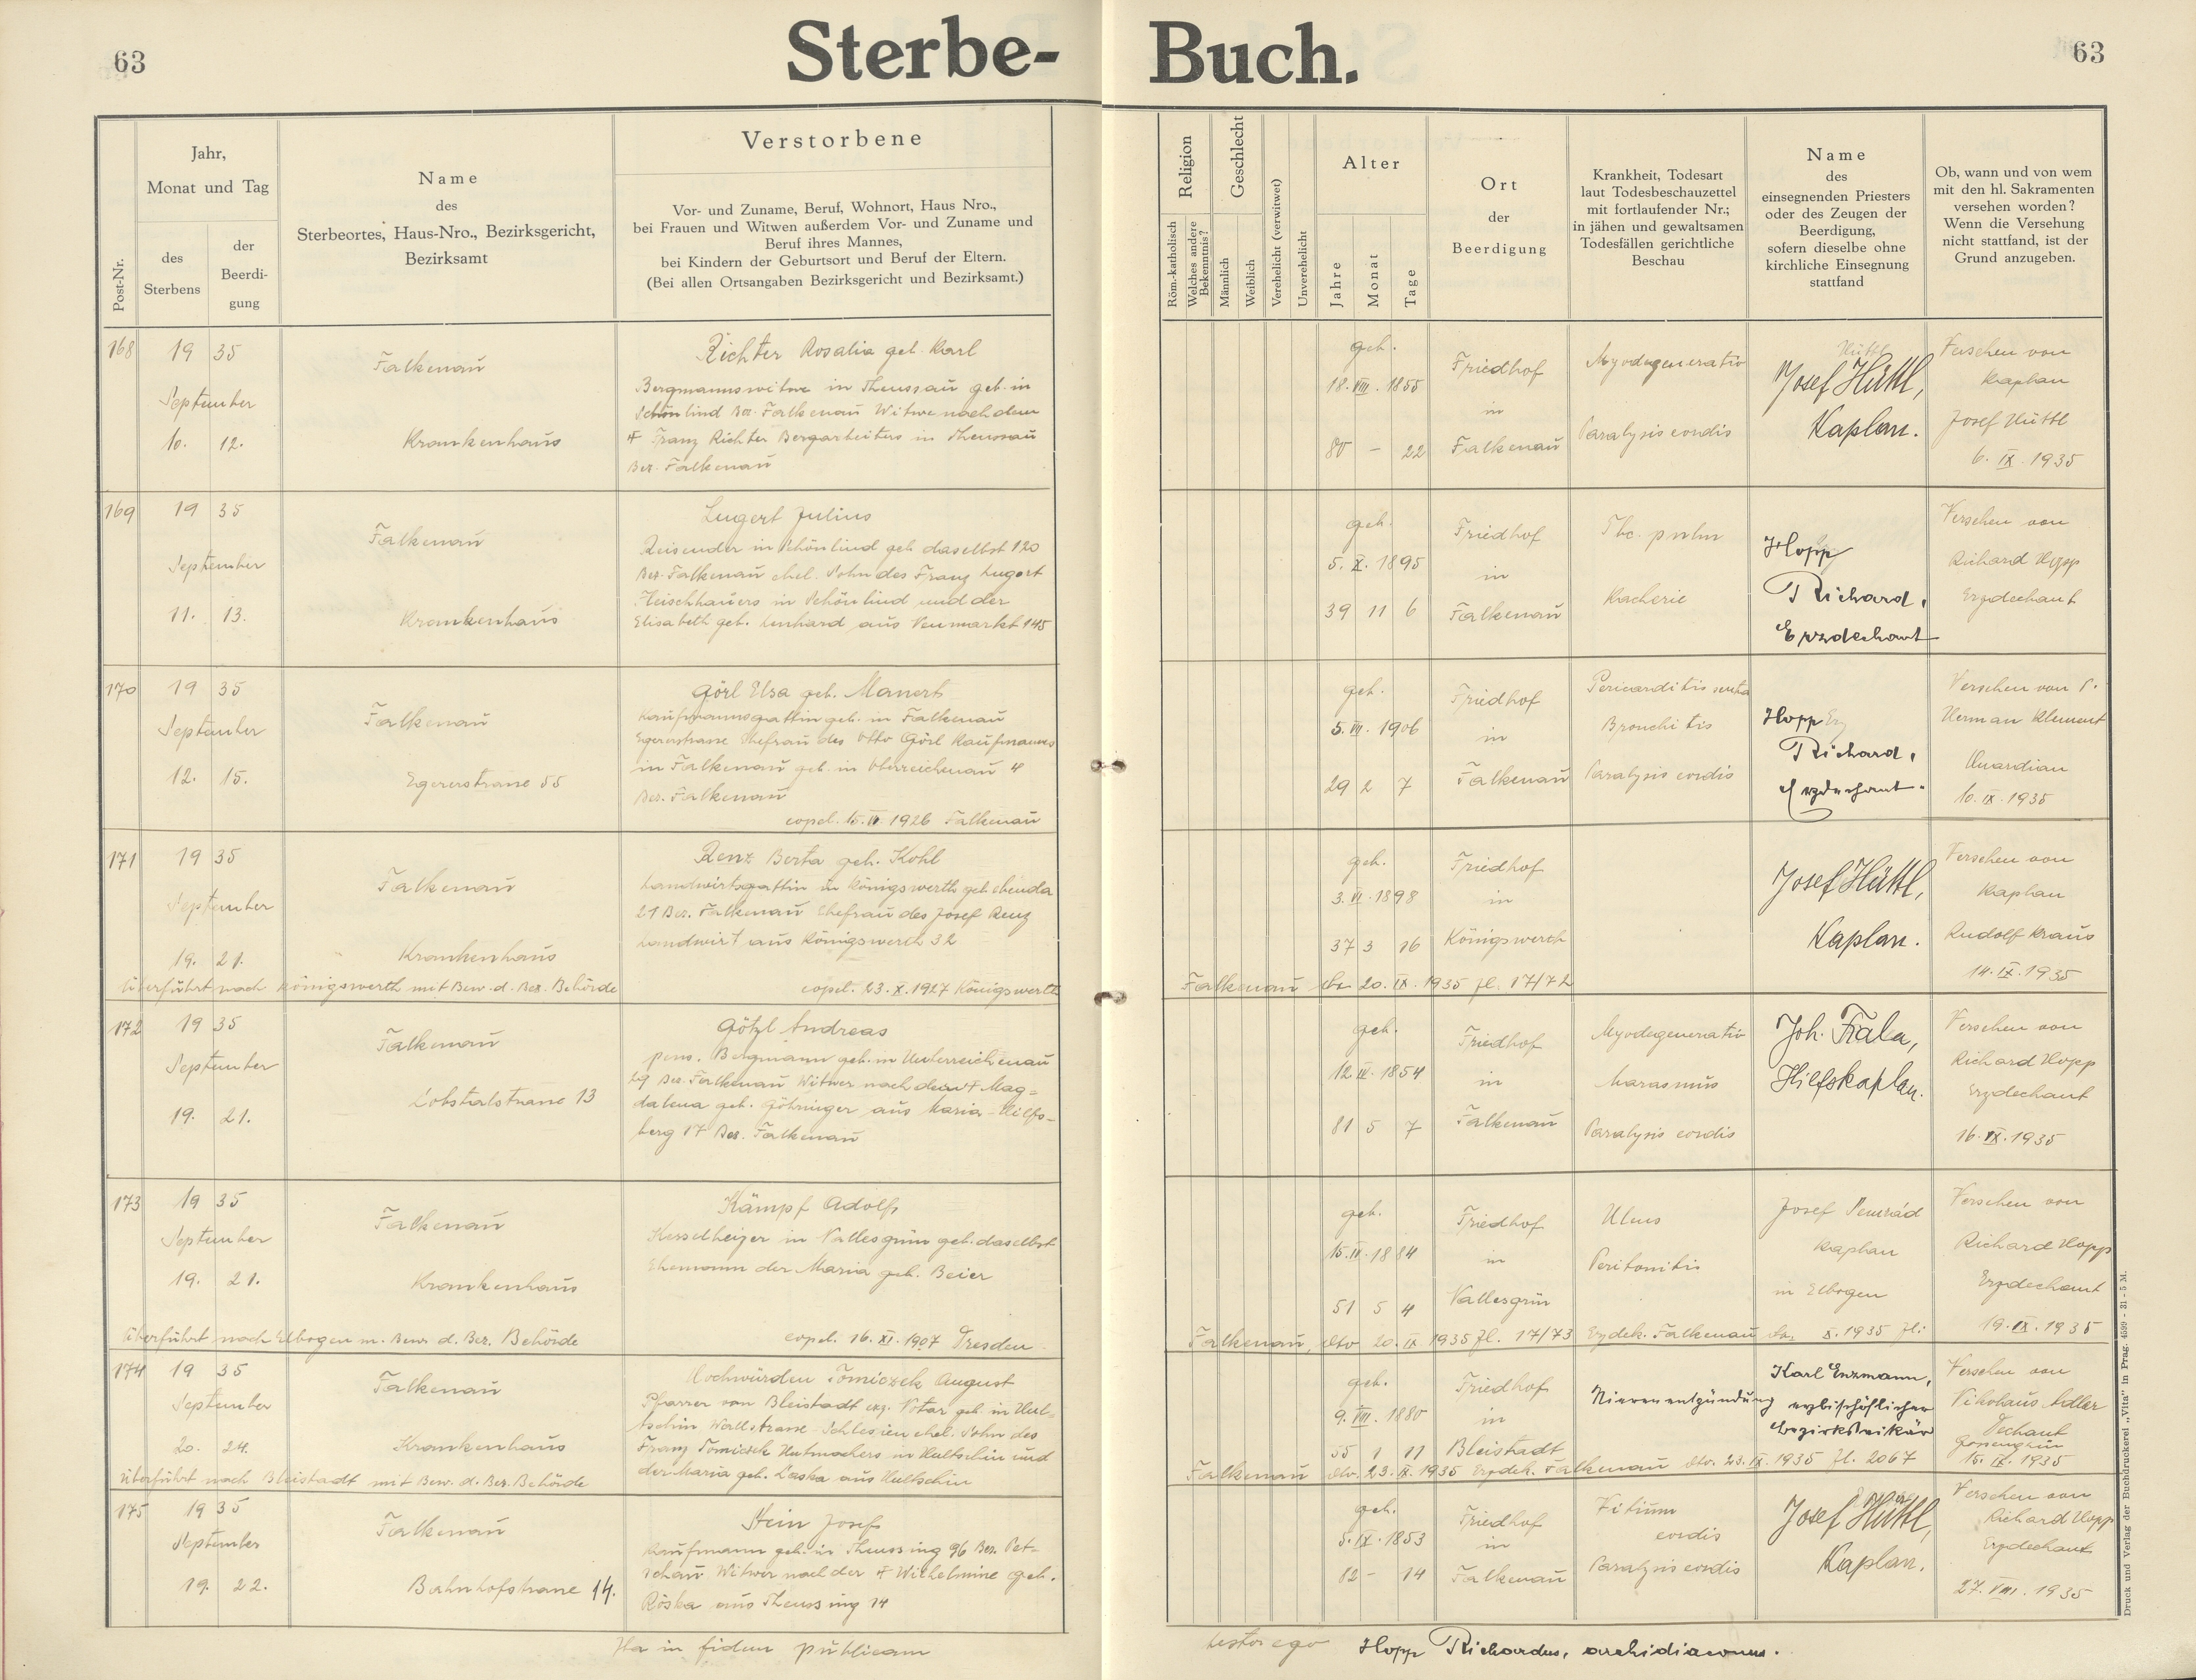 63
Sterbe-
Buch.
63
Post-Nr.
Jahr,
Monat und Tag
des
Sterbens
der
Beerdi-
gung
Name
des
Sterbeortes, Haus-Nro., Bezirksgericht,
Bezirksamt
Verstorbene
Vor- und Zuname, Beruf, Wohnort, Haus Nro.,
bei Frauen und Witwen außerdem Vor- und Zuname und
Beruf ihres Mannes,
bei Kindern der Geburtsort und Beruf der Eltern.
(Bei allen Ortsangaben Bezirksgericht und Bezirksamt.)
Religion
Röm.-katholisch
Welches andere
Bekenntnis?
Geschlecht
Männlich
Weiblich
Verehelicht (verwitwet)
Unverehelicht
Alter
Jahre
Monat
Tage
Ort
der
Beerdigung
Krankheit, Todesart
laut Todesbeschauzettel
mit fortlaufender Nr.;
in jähen und gewaltsamen
Todesfällen gerichtliche
Beschau
Name
des
einsegnenden Priesters
oder des Zeugen der
Beerdigung,
sofern dieselbe ohne
kirchliche Einsegnung
stattfand
Ob, wann und von wem
mit den hl. Sakramenten
versehen worden?
Wenn die Versehung
nicht stattfand, ist der
Grund anzugeben.
168
19 35
September
10. 12.
Falkenau
Krankenhaus
Richter Rosalia geb. Karl
Bergmannswitwe in Theussau geb. in
Schönlind Bez. Falkenau Witwe nach dem
† Franz Richter Bergarbeiters in Theussau
Bez. Falkenau
geb.
18. VIII. 1855
80 – 22
Friedhof
in
Falkenau
Myodegeneratio
Paralysis cordis
Hüttl
Josef Hüttl,
Kaplan.
Versehen von
Kaplan
Josef Hüttl
6. IX. 1935
169
19 35
September
11. 13.
Falkenau
Krankenhaus
Lugert Julius
Reisender in Schönlind geb. daselbst 120
Bez. Falkenau ehel. Sohn des Franz Lugert
Fleischhauers in Schönlind und der
Elisabeth geb. Lenhard aus Neumarkt 145
geb.
5. X. 1895
39 11 6
Friedhof
in
Falkenau
Tbc. pulm
Kacherie
Hopp
Richard,
Erzdechant
Versehen von
Richard Hopp
Erzdechant
170
19 35
September
12. 15.
Falkenau
Egererstrasse 55
Görl Elsa geb. Manert
Kaufmannsgattin geb. in Falkenau
Egererstrasse Ehefrau des Otto Görl Kaufmannes
in Falkenau geb. in Oberreichenau 4
Bez. Falkenau
copul. 15. II 1926 Falkenau
geb.
5. VII. 1906
29 2 7
Friedhof
in
Falkenau
Pericarditis
Bronchitis
Paralysis cordis
Hopp
Richard,
Erzdechant.
Versehen von P.
Herman Klement
Guardian
10. IX. 1935
171
19 35
September
19. 21.
Falkenau
Krankenhaus
Renz Berta geb. Kohl
Landwirtsgattin in Königswerth geb. ebenda
21 Bez. Falkenau Ehefrau des Josef Renz
Landwirt aus Königswerth 32
überführt nach Königswerth mit Bew. d. Bez. Behörde
copul. 23. X. 1927 Königswerth
geb.
3. VI. 1898
37 3 16
Friedhof
in
Königswerth
Falkenau dto 20. IX. 1935 Zl. 17/72
Josef Hüttl,
Kaplan.
Versehen von
Kaplan
Rudolf Kraus
14. IX. 1935
172
19 35
September
19. 21.
Falkenau
Lobstalstrasse 13
Götzl Andreas
pens. Bergmann geb. in Unterreichenau
29 Bez. Falkenau Witwer nach der † Mag-
dalena geb. Göhringer aus Maria-Hilfs-
berg 17 Bez. Falkenau
geb.
12. IV. 1854
81 5 7
Friedhof
in
Falkenau
Myodegeneratio
Marasmus
Paralysis cordis
Joh. Frala,
Hilfskaplan.
Versehen von
Richard Hopp
Erzdechant
16. IX. 1935
173
19 35
September
19. 21.
Falkenau
Krankenhaus
Kämpf Adolf
Kesselheizer in Vallesgrün geb. daselbst
Ehemann der Maria geb. Beier
überführt nach Elbogen m. Bew. d. Bez. Behörde
copul. 16. XI. 1907 Dresden
geb.
15. IV. 1884
51 5 4
Friedhof
in
Vallesgrün
Ulcus
Peritonitis
Josef
Kaplan
in Elbogen
Falkenau, dto 20. IX 1935 Zl. 17/73 Erzdek. Falkenau dto. X. 1935 Zl:
Versehen von
Richard Hopp
Erzdechant
19. IX. 1935
174
19 35
September
20. 24.
Falkenau
Krankenhaus
Hochwürden Tomiczek August
Pfarrer von Bleistadt erz. Notar geb. in Hul-
tschin Wallstrasse-Schlesien ehel. Sohn des
Franz Tomiczek Hutmachers in Hultschin und
der Maria geb. Laska aus Hultschin
überführt nach Bleistadt mit Bew. d. Bez. Behörde
geb.
9. VIII. 1880
55 1 11
Friedhof
in
Bleistadt
Nierenentzündung
Karl Enzmann,
erzbischöflicher
Bezirksvikär
Falkenau dto. 23. IX. 1935 Erzdek. Falkenau dto. 23. IX. 1935 Zl. 2067
Versehen von
Nikolaus Adler
Dechant
Gossengrün
15. IX. 1935
175
19 35
September
19. 22.
Falkenau
Bahnhofstrasse 14.
Stein Josef
Kaufmann geb. in Theussing 96 Bez. Pet-
schau Witwer nach der † Wilhelmine geb.
Röska aus Theussing 14
geb.
5. IX. 1853
82 – 14
Friedhof
in
Falkenau
Vitium
cordis
Paralysis cordis
Josef Hüttl,
Kaplan.
Versehen von
Richard Hopp
Erzdechant
27. VIII. 1935
Ita in fidem publicam
testor ego Hopp Richardus, archidiaconus.
Druck und Verlag der Buchdruckerei „Vita" in Prag. 4599 - 31 - 5 M.